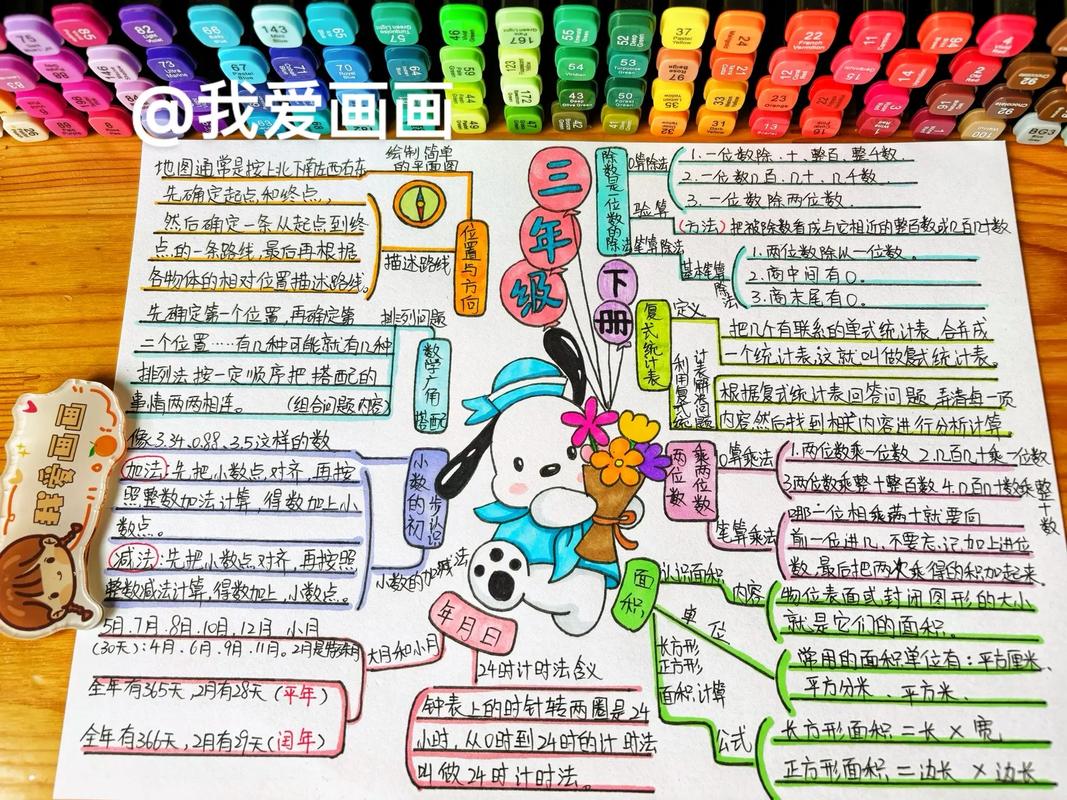 @我爱画画
我爱画画
三年级
下册
绘制简单
的平面图
地图通常是按上北下南左西右东
先确定起点和终点,
然后确定一条从起点到终
点的一条路线,最后再根据
各物体的相对位置描述路线。
描述路线
位置与方向
先确定第一个位置,再确定第
二个位置……有几种可能就有几种
排列法按一定顺序把搭配的
事情两两相连。 (组合问题内容)
排列问题
数学广角
搭配
像3.34.0.88、3.5这样的数
加法:先把小数点对齐,再按
照整数加法计算,得数加上小
数点。
减法:先把小数点对齐,再按照
整数减法计算,得数加上,小数点。
小数的初步认识
小数的加减法
年月日
大月和小月
5月.7月.8月.10月.12月 小月
(30天):4月.6月.9月.11月。2月是特殊月
全年有365天,2月有28天(平年)
全年有366天,2月有29天(闰年)
24时计时法含义
钟表上的时针转两圈是24
小时,从0时到24时的计时法
叫做24时计时法。
除数是一位数的除法
口算除法
1.一位数除、十、整百、整千数
2.一位数几百.几十、几千数
3.一位数除两位数
验算
(方法)把被除数看成与它相近的整百数或几百几十数
笔算除法
基本笔算除法
1.两位数除从一位数。
2.商中间有0。
3.商末尾有0。
复式统计表
定义
把几个有联系的单式统计表,合并成
一个统计表,这就叫做复式统计表。
利用复式统计表解决问题
根据复式统计表回答问题,弄清每一项
内容然后找到相关内容进行分析计算
两位数乘两位数
口算乘法
1.两位数乘一位数 2.几百几十乘一位数
3两位数乘整十整百数 4.几百几十数乘整十数
笔算乘法
哪一位相乘满十就要向
前一位进几,不要忘记加上进位
数.最后把两次乘得的积加起来.
面积
认识面积
内容
物位表面或封闭图形的大小
就是它们的面积。
单位
常用的面积单位有:平方厘米.
平方分米、平方米.
长方形
正方形
面积计算
公式
长方形面积=长×宽
正方形面积=边长×边长